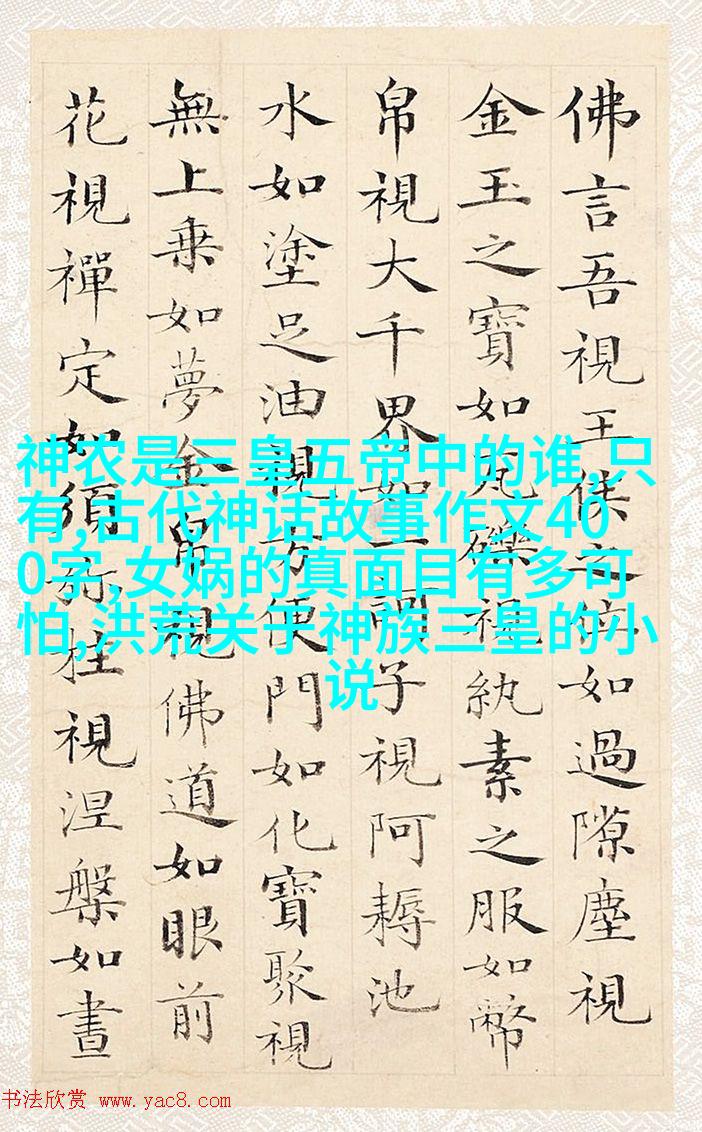 佛言吾視王侯之位如過隙塵視
金玉之寶如瓦礫視紈素之服如幣
帛視大千界如一訶子視阿耨池
水如塗足油視方便門如化寶聚視
無上乘如夢金帛視佛道如眼前
花視禪定如須彌柱視涅槃如晝
神农是三皇五帝中的谁,只
有,古代神话故事作文40
0字,女娲的真面目有多可
怕,洪荒关于神族三皇的小
说
书法欣赏 www.yac8.com